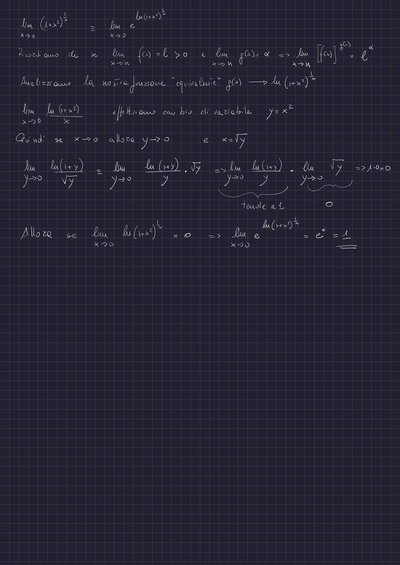 lim x→0 (1+x²)^(1/x) = lim x→0 e^(ln(1+x²)^(1/x))
Ricordiamo che se lim x→x f(x) = l > 0 e lim x→x g(x) = α => lim x→x [f(x)]^(g(x)) = l^α
Analizziamo la nostra funzione "equivalente" g(x) → ln(1+x²)^(1/x)
lim x→0 ln(1+x²)/x effettuiamo cambio di variabile y = x²
Quindi se x→0 allora y→0 e x = √y
lim y→0 ln(1+y)/√y = lim y→0 ln(1+y)/y · √y => lim y→0 ln(1+y)/y · lim y→0 √y => 1·0=0
tende a 1 0
Allora se lim x→0 ln(1+x²)^(1/x) = 0 => lim x→0 e^(ln(1+x²)^(1/x)) = e⁰ = 1